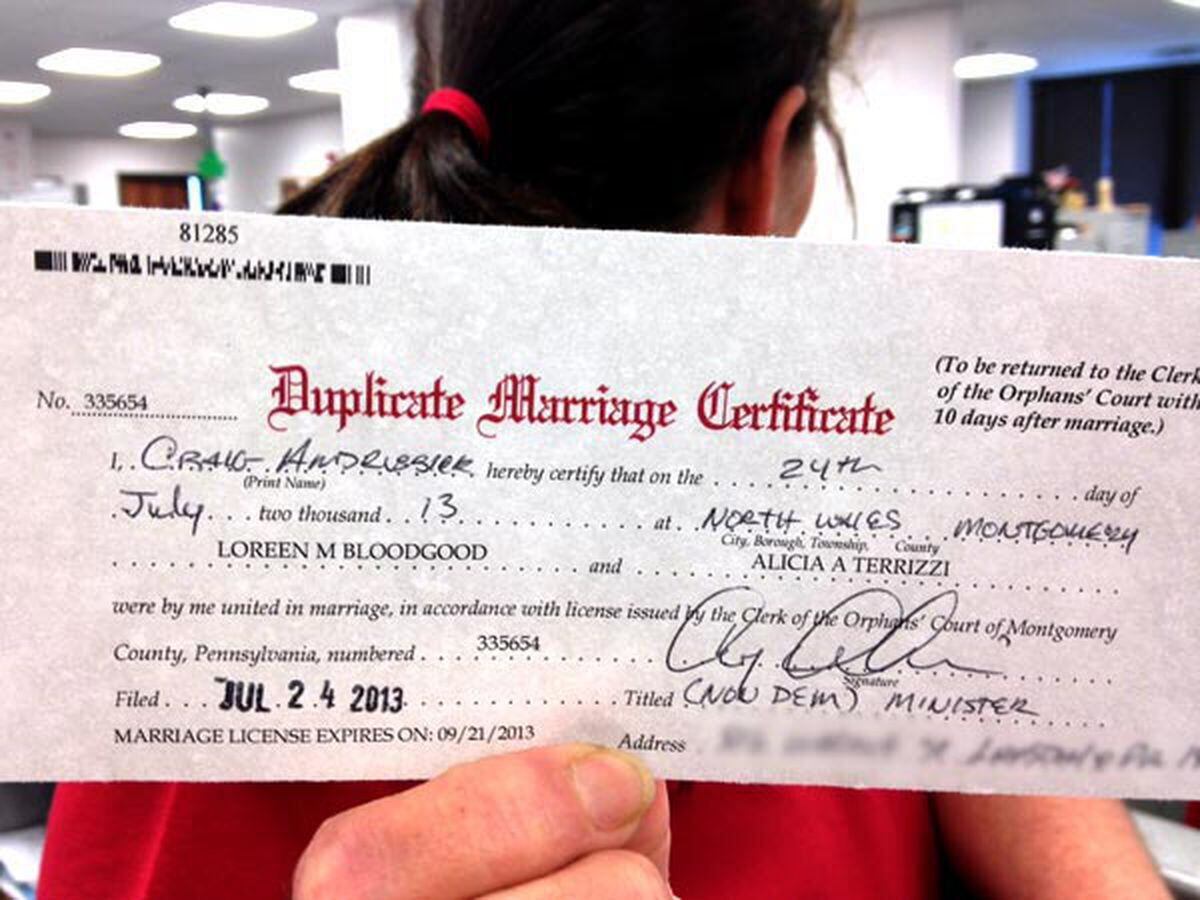 81285
(To be returned to the Clerk
of the Orphans' Court with
10 days after marriage.)
No. 335654
Duplicate Marriage Certificate
I, CRAIG ANDRUSSIER hereby certify that on the 24th day of
(Print Name)
July two thousand 13 at NORTH WALES MONTGOMERY
City, Borough, Township, County
LOREEN M BLOODGOOD and ALICIA A TERRIZZI
were by me united in marriage, in accordance with license issued by the Clerk of the Orphans' Court of Montgomery
County, Pennsylvania, numbered 335654
Signature
Filed JUL 24 2013 Titled (NON DEM) MINISTER
MARRIAGE LICENSE EXPIRES ON: 09/21/2013 Address